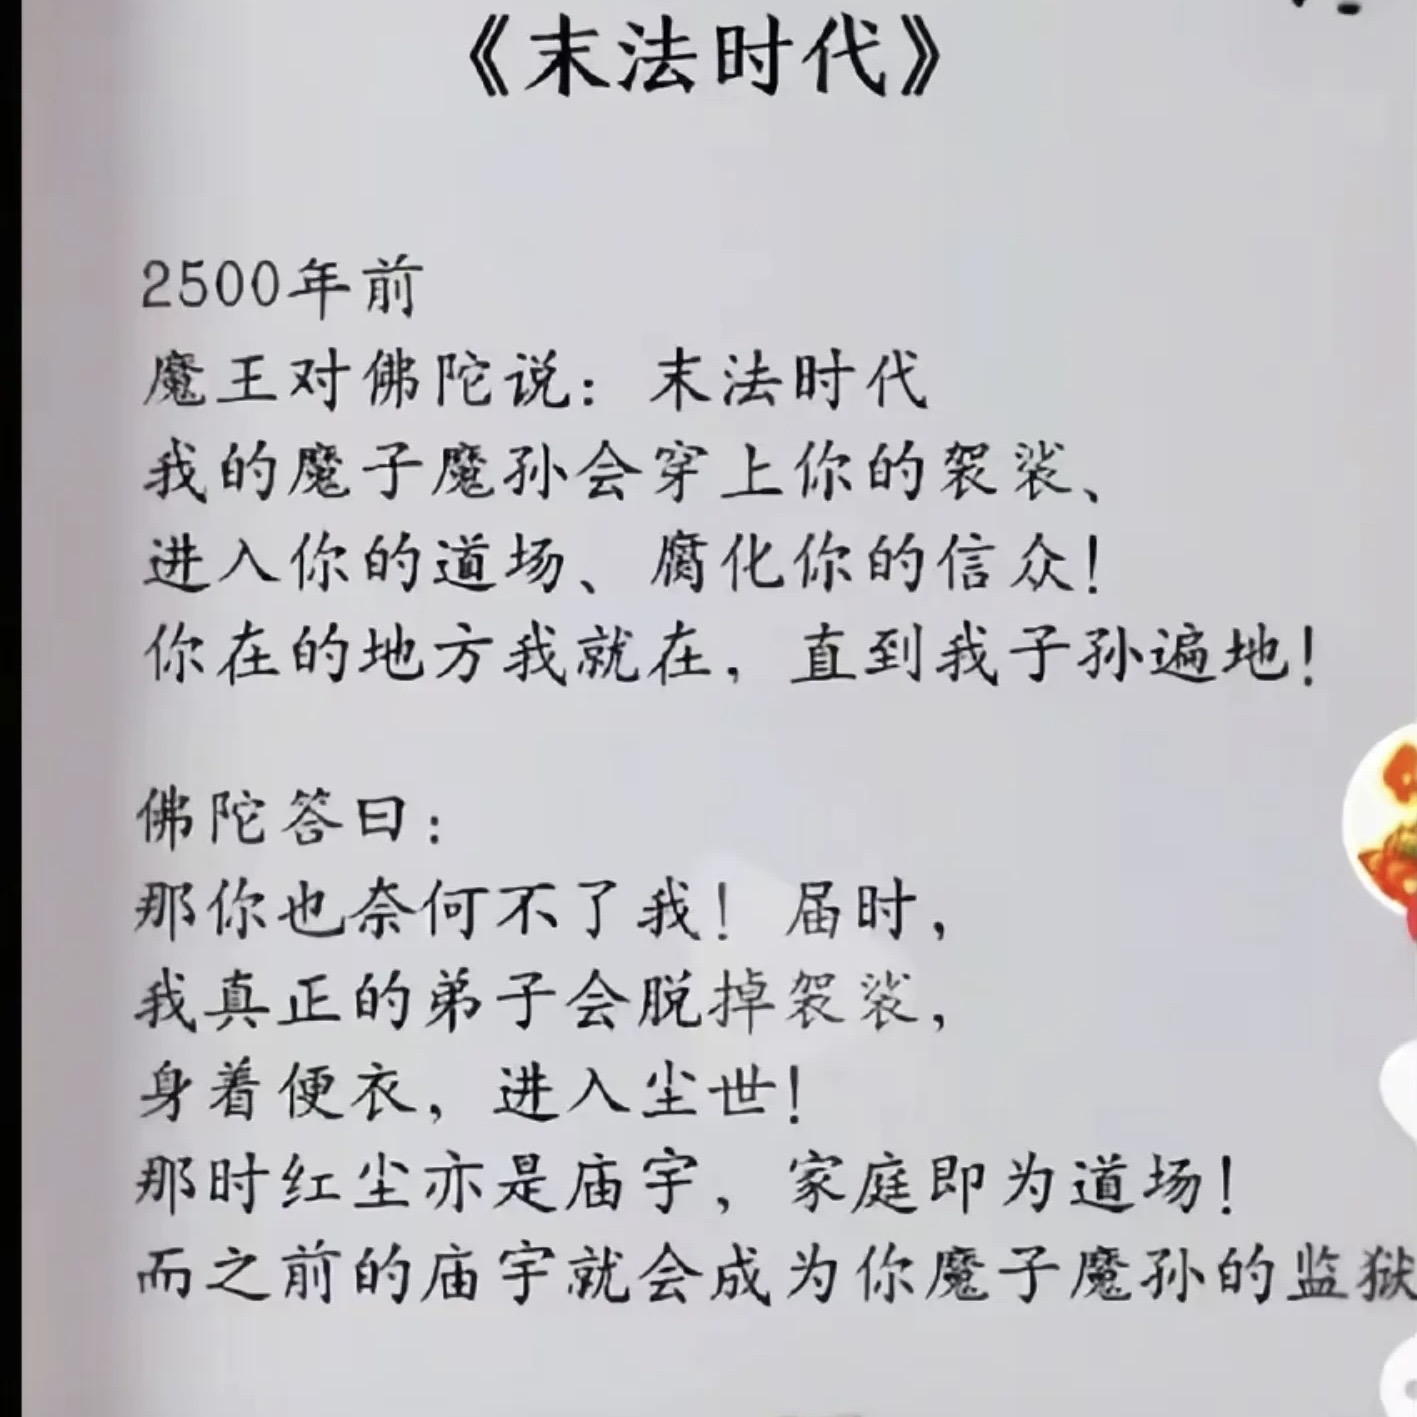 《末法时代》
2500年前
魔王对佛陀说：末法时代
我的魔子魔孙会穿上你的袈裟、
进入你的道场、腐化你的信众！
你在的地方我就在，直到我子孙遍地！
佛陀答曰：
那你也奈何不了我！届时，
我真正的弟子会脱掉袈裟，
身着便衣，进入尘世！
那时红尘亦是庙宇，家庭即为道场！
而之前的庙宇就会成为你魔子魔孙的监狱